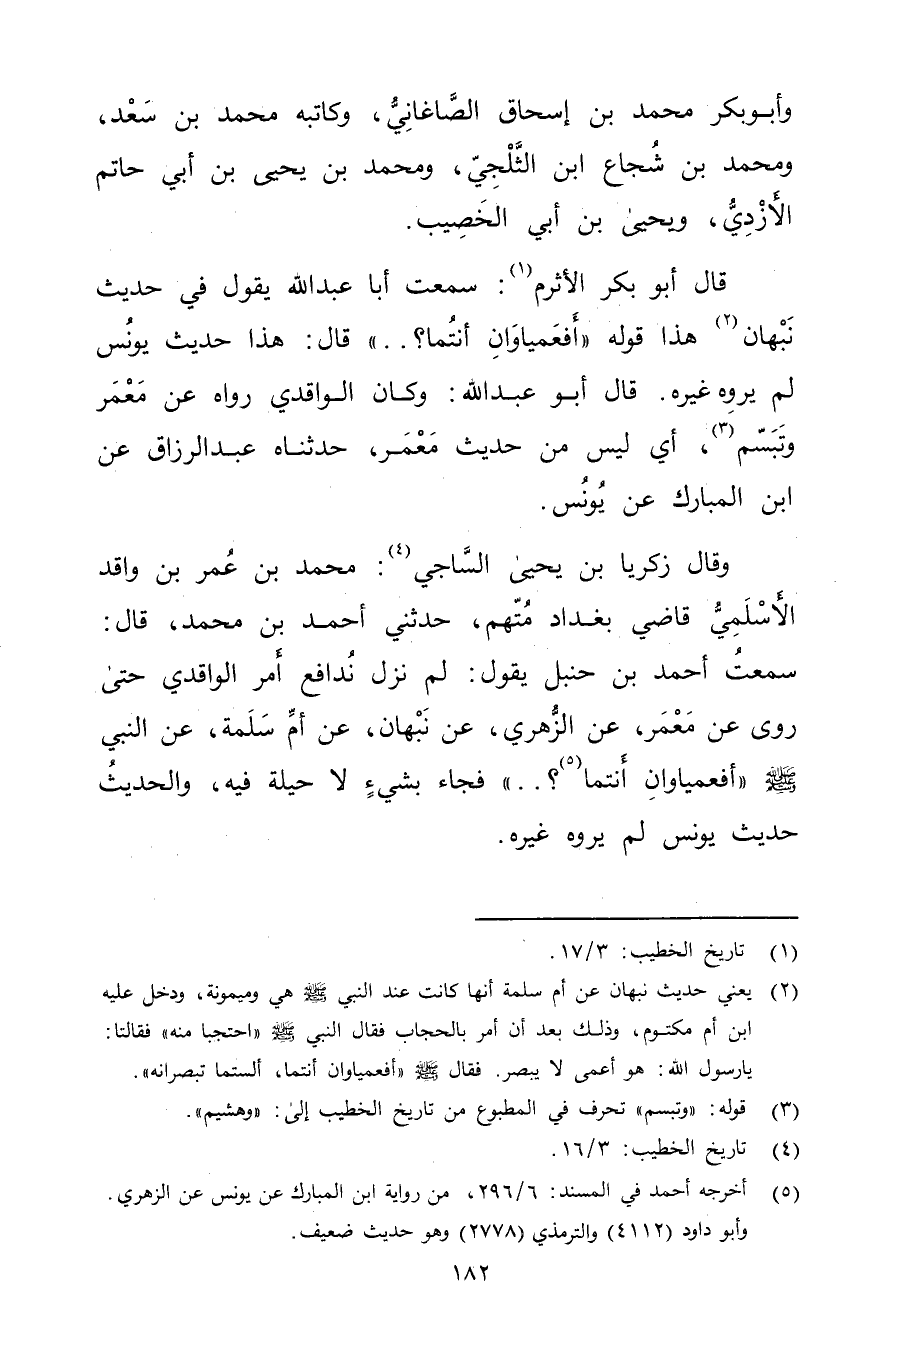 وأبوبكر محمد بن إسحاق الصَّاغانِيُّ، وكاتبه محمد بن سَعْد،
ومحمد بن شُجاع ابن الثَّلْجِيّ، ومحمد بن يحيى بن أبي حاتم
الأَزْدِيُّ، ويحيىٰ بن أبي الخَصِيب.
قال أبو بكر الأثرم(١): سمعت أبا عبدالله يقول في حديث
نَبْهان(٢) هذا قوله «أَفعَمياوَانِ أنتُما؟..» قال: هذا حديث يونُس
لم يروِه غيره. قال أبو عبدالله: وكان الواقدي رواه عن مَعْمَر
وتَبَسّم(٣)، أي ليس من حديث مَعْمَر، حدثناه عبدالرزاق عن
ابن المبارك عن يُونُس.
وقال زكريا بن يحيىٰ السَّاجي(٤): محمد بن عُمر بن واقد
الأَسْلَمِيُّ قاضي بغداد مُتّهم، حدثني أحمد بن محمد، قال:
سمعتُ أحمد بن حنبل يقول: لم نزل نُدافع أَمر الواقدي حتىٰ
روى عن مَعْمَر، عن الزُّهري، عن نَبْهان، عن أمِّ سَلَمة، عن النبي
ﷺ «أفعمياوانِ أَنتما(٥)؟..» فجاء بشيءٍ لا حيلة فيه، والحديثُ
حديث يونس لم يروه غيره.
(١) تاريخ الخطيب: ١٧/٣.
(٢) يعني حديث نبهان عن أم سلمة أنها كانت عند النبي ﷺ هي وميمونة، ودخل عليه
ابن أم مكتوم، وذلك بعد أن أمر بالحجاب فقال النبي ﷺ «احتجبا منه» فقالتا:
يارسول الله: هو أعمى لا يبصر. فقال ﷺ «أفعمياوان أنتما، ألستما تبصرانه».
(٣) قوله: «وتبسم» تحرف في المطبوع من تاريخ الخطيب إلىٰ: «وهشيم».
(٤) تاريخ الخطيب: ١٦/٣.
(٥) أخرجه أحمد في المسند: ٢٩٦/٦، من رواية ابن المبارك عن يونس عن الزهري.
وأبو داود (٤١١٢) والترمذي (٢٧٧٨) وهو حديث ضعيف.
١٨٢